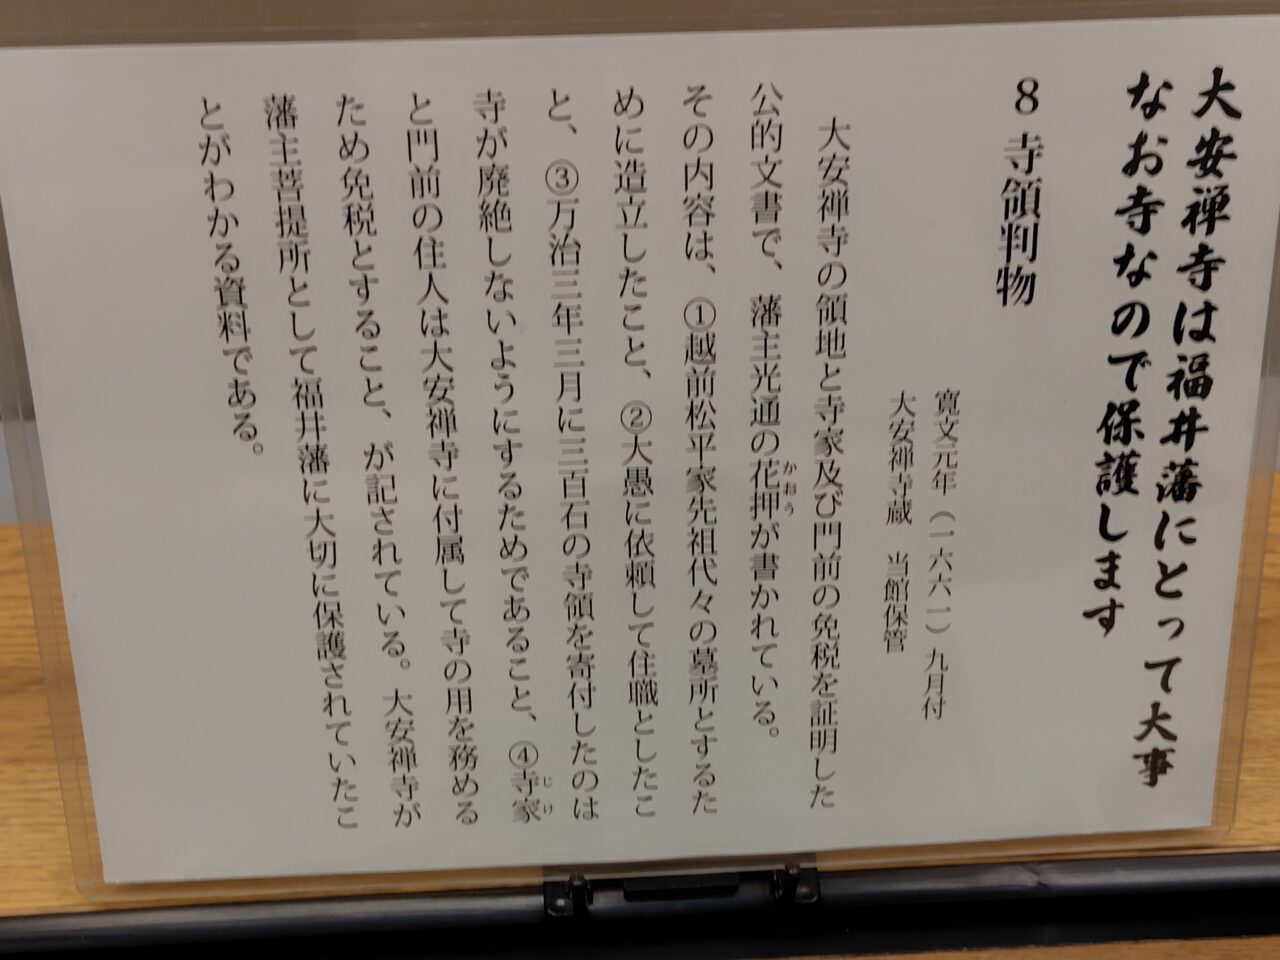 大安禅寺は福井藩にとって大事
なお寺なので保護します
8 寺領判物
寛文元年（一六六一）九月付
大安禅寺蔵　当館保管
大安禅寺の領地と寺家及び門前の免税を証明した
公的文書で、藩主光通の花押が書かれている。
かおう
その内容は、①越前松平家先祖代々の墓所とするた
めに造立したこと、②大愚に依頼して住職としたこ
と、③万治三年三月に三百石の寺領を寄付したのは
寺が廃絶しないようにするためであること、④寺家
じけ
と門前の住人は大安禅寺に付属して寺の用を務める
ため免税とすること、が記されている。大安禅寺が
藩主菩提所として福井藩に大切に保護されていたこ
とがわかる資料である。